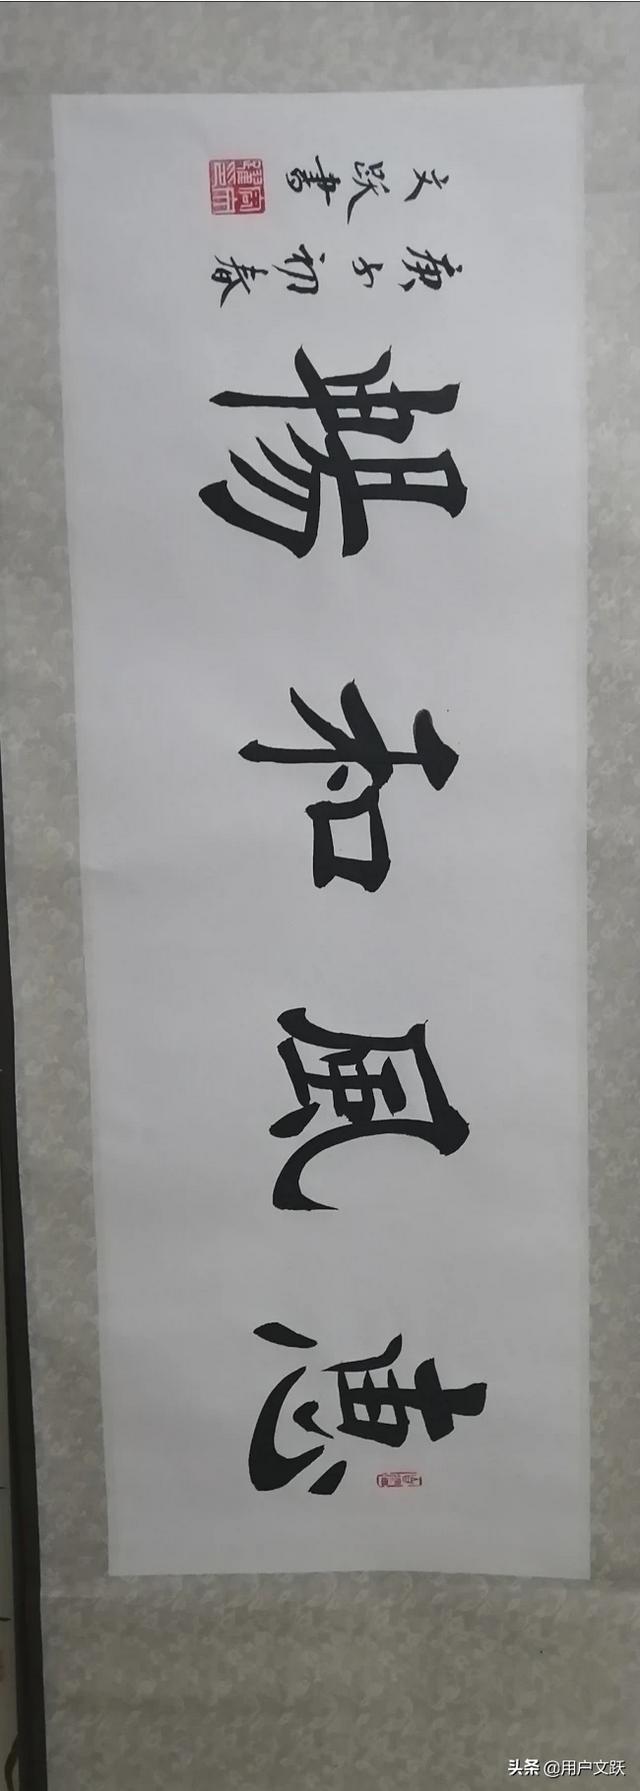 惠風和暢
庚子初春
文跃書
头条 @用户文跃